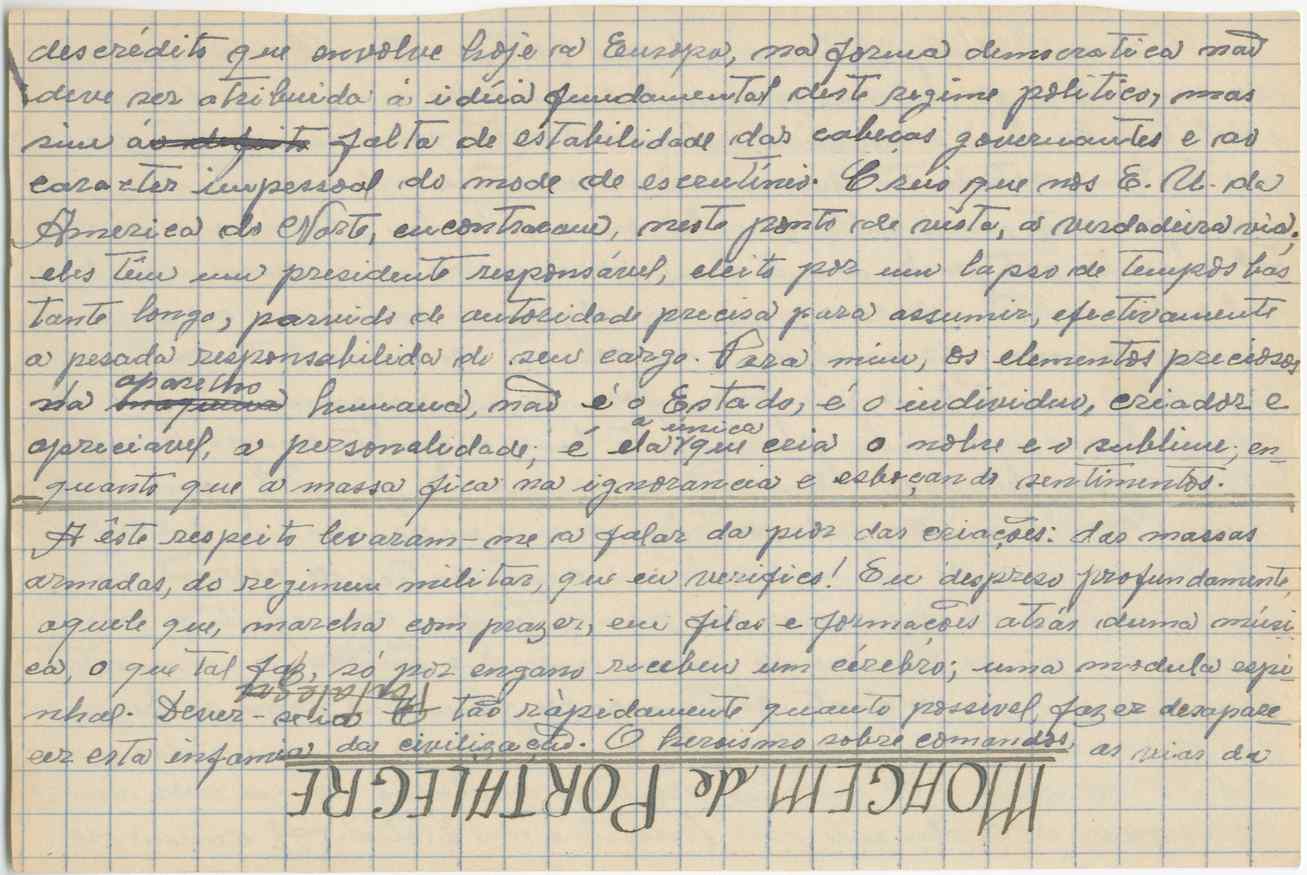 descrédito que envolve hoje a Europa, na forma democratica não
deve ser atribuida á idéia fundamental deste regime politico, mas
sim áo defeito falta de estabilidade das cabeças governantes e ao
caracter impessoal do mode de escrutínio. Creio que nos E. U. da
America do Norte, encontraram, neste ponto de vista, a verdadeira via;
eles têm um presidente responsável, eleito por um lapso de tempos bas
tante longo, parvido de autoridade precisa para assumir, efectivamente
a pesada responsabilida do seu cargo. Para mim, os elementos preciosos
aparelho
na maquina humana, não é o Estado, é o individuo, criador e
a unica
apreciavel, a personalidade; é ela que cria o nobre e o sublime; en-
quanto que a massa fica na ignorancia e esboçando sentimentos.
A êste respeito levaram-me a falar da pior das criações: das massas
armadas, do regimem militar, que eu verifico! Eu despreso profundamente,
aquele que, marcha com prazer, em filas e formações atrás duma músi
ca, o que tal faz, só por engano recebeu um cérebro; uma modula espi
Portalegre
nhal. Dever-se-ia tão ràpidamente quanto possivel, fazer desapare
cer esta infamia da civilização. O heroismo sobre comandos, as vias da
MOAGEM de PORTALEGRE